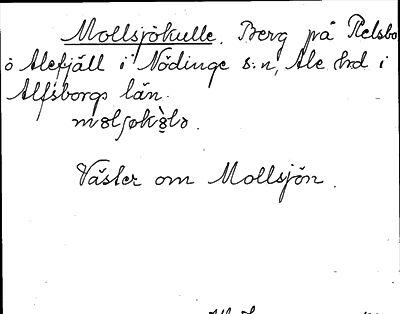 Mollsjökulle. Berg på Relsbo
ö Alefjäll i Nödinge s:n, Ale hd i
Älfsborgs län.
Väster om Mollsjön.